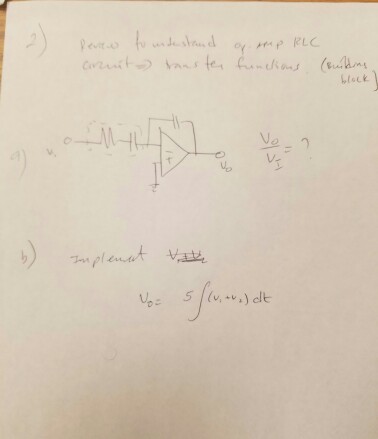 2) Review to understand op-amp RLC
circuit => transfer functions (building
block)
a) V₁ V₀ V₀/V_I = ?
b) Implement
V₀ = 5 ∫(v₁+v₂) dt